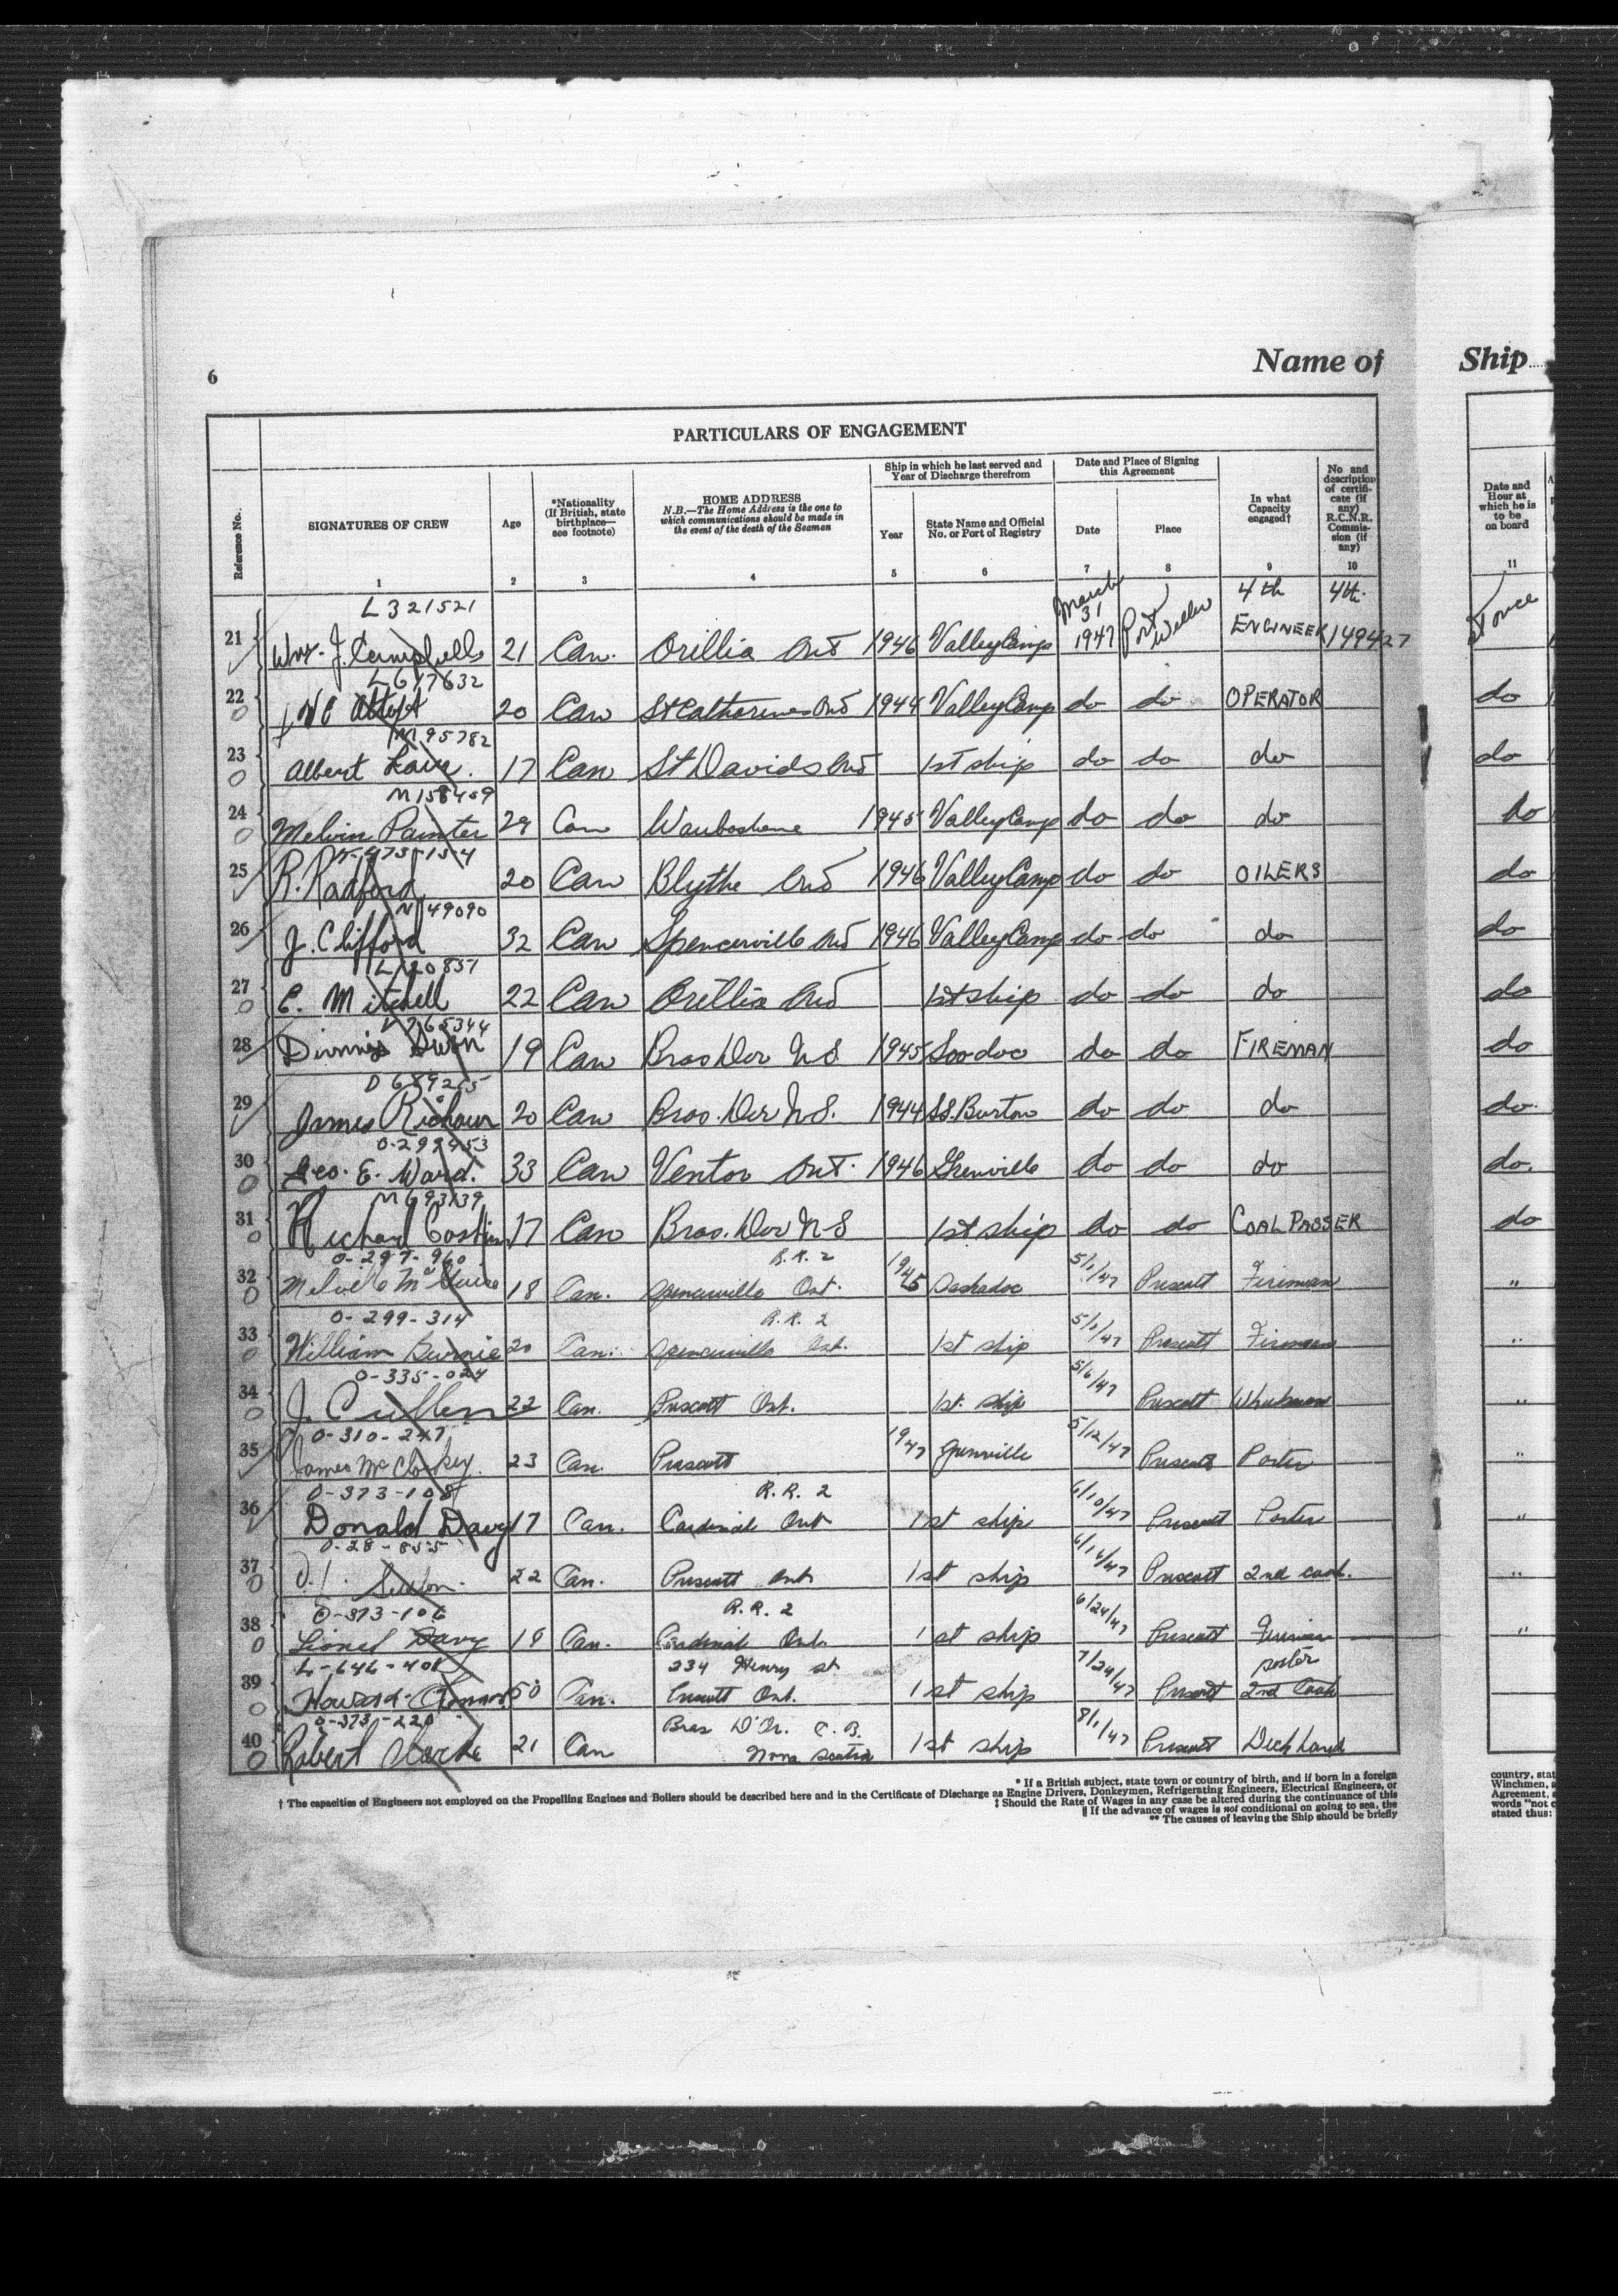 6
Name of Ship
PARTICULARS OF ENGAGEMENT
Reference No.
SIGNATURES OF CREW
1
Age
2
*Nationality
(If British, state
birthplace—
see footnote)
3
HOME ADDRESS
N.B.—The Home Address is the one to
which communications should be made in
the event of the death of the Seaman
4
Ship in which he last served and
Year of Discharge therefrom
Year
5
State Name and Official
No. or Port of Registry
6
Date and Place of Signing
this Agreement
Date
7
Place
8
In what
Capacity
engaged†
9
No and
description
of certifi-
cate (if
any)
R.C.N.R.
Commis-
sion (if
any)
10
Date and
Hour at
which he is
to be
on board
11
L 321521 March 31 4th 4th.
21 Wm. J. Campbell 21 Can. Orillia Ont 1946 Valley Camp 1947 Port Weller ENGINEER 149427 at once
L617632
22 20 Can St Catharines Ont 1944 Valley Camp do do OPERATOR do
M95782
23 Albert 17 Can St Davids Ont 1st ship do do do do
M158459
24 Melvin Painter 29 Can Waubashene 1945 Valley Camp do do do do
25 R. Radford 20 Can Blythe Ont 1946 Valley Camp do do OILERS do
49090
26 J. Clifford 32 Can Spencerville Ont 1946 Valley Camp do do do do
L120851
27 C. Mitchell 22 Can Orillia Ont 1st ship do do do do
765344
28 19 Can Bras Dor N S 1945 Soodoc do do FIREMAN do
D689215
29 James 20 Can Bras. Dor N S. 1944 SS. Burton do do do do.
0-299453
30 Geo. E. Ward. 33 Can Ventor Ont. 1946 Grenville do do do do.
M693139
31 Richard 17 Can Bras. Dor N S 1st ship do do COAL PASSER do
0-297-960 R.R. 2
32 Melville McGuire 18 Can. Spencerville Ont. 1945 5/1/47 Prescott Fireman "
0-299-314 R.R. 2
33 William Burnie 20 Can. Spencerville Ont. 1st ship 5/1/47 Prescott Fireman "
0-335-024
34 J. Cullen 22 Can. Prescott Ont. 1st. ship 5/6/47 Prescott Wheelsman "
0-310-247
35 James McCloskey. 23 Can. Prescott 1947 Grenville 5/12/47 Prescott Porter "
0-373-108 R.R. 2
36 Donald Davy 17 Can. Cardinal Ont 1st ship 6/10/47 Prescott Porter "
0-28-855
37 22 Can. Prescott Ont 1st ship 6/16/47 Prescott 2nd cook. "
0-373-106 R.R. 2
38 Lionel Davy 18 Can. Cardinal Ont. 1st ship 6/24/47 Prescott Fireman "
L-646-408 234 Henry st porter
39 Howard 50 Can. Prescott Ont. 1st ship 7/24/47 Prescott 2nd Cook
0-373-220 Bras D'Or. C.B.
40 Robert 21 Can Nova Scotia 1st ship 8/1/47 Prescott Deckhand
* If a British subject, state town or country of birth, and if born in a foreign
† The capacities of Engineers not employed on the Propelling Engines and Boilers should be described here and in the Certificate of Discharge as Engine Drivers, Donkeymen, Refrigerating Engineers, Electrical Engineers, or
‡ Should the Rate of Wages in any case be altered during the continuance of this
‖ If the advance of wages is not conditional on going to sea, the
** The causes of leaving the Ship should be briefly
country, stat
Winchmen,
Agreement,
words "not c
stated thus: